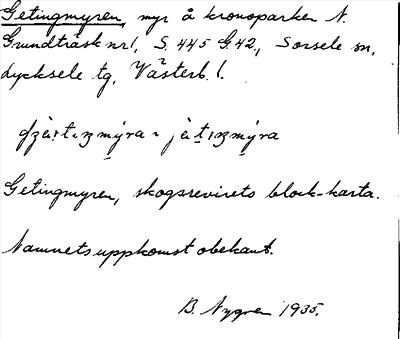 Getingmyren, myr å kronoparken N.
Grundträsk nr 1, S. 445 G. 42, Sorsele sn,
Lycksele tg, Västerb. l.
Getingmyren, skogsrevirets block-karta.
Namnets uppkomst obekant.
B. Nygren 1935.